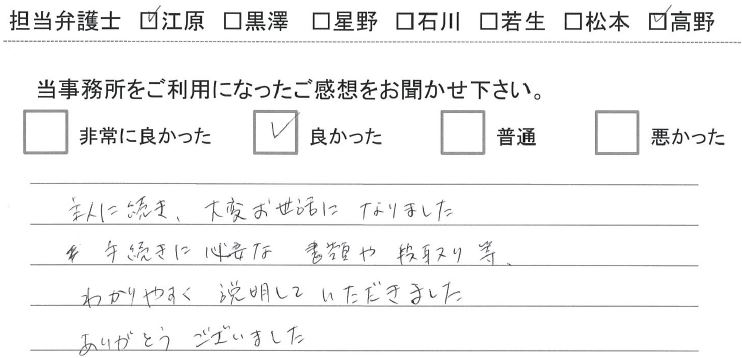 担当弁護士 ☑江原 □黒澤 □星野 □石川 □若生 □松本 ☑高野
当事務所をご利用になったご感想をお聞かせ下さい。
□ 非常に良かった ☑ 良かった □ 普通 □ 悪かった
主人に続き、大変お世話になりました
手続きに必要な 書類や 段取り等、
わかりやすく 説明して いただきました
ありがとう ございました